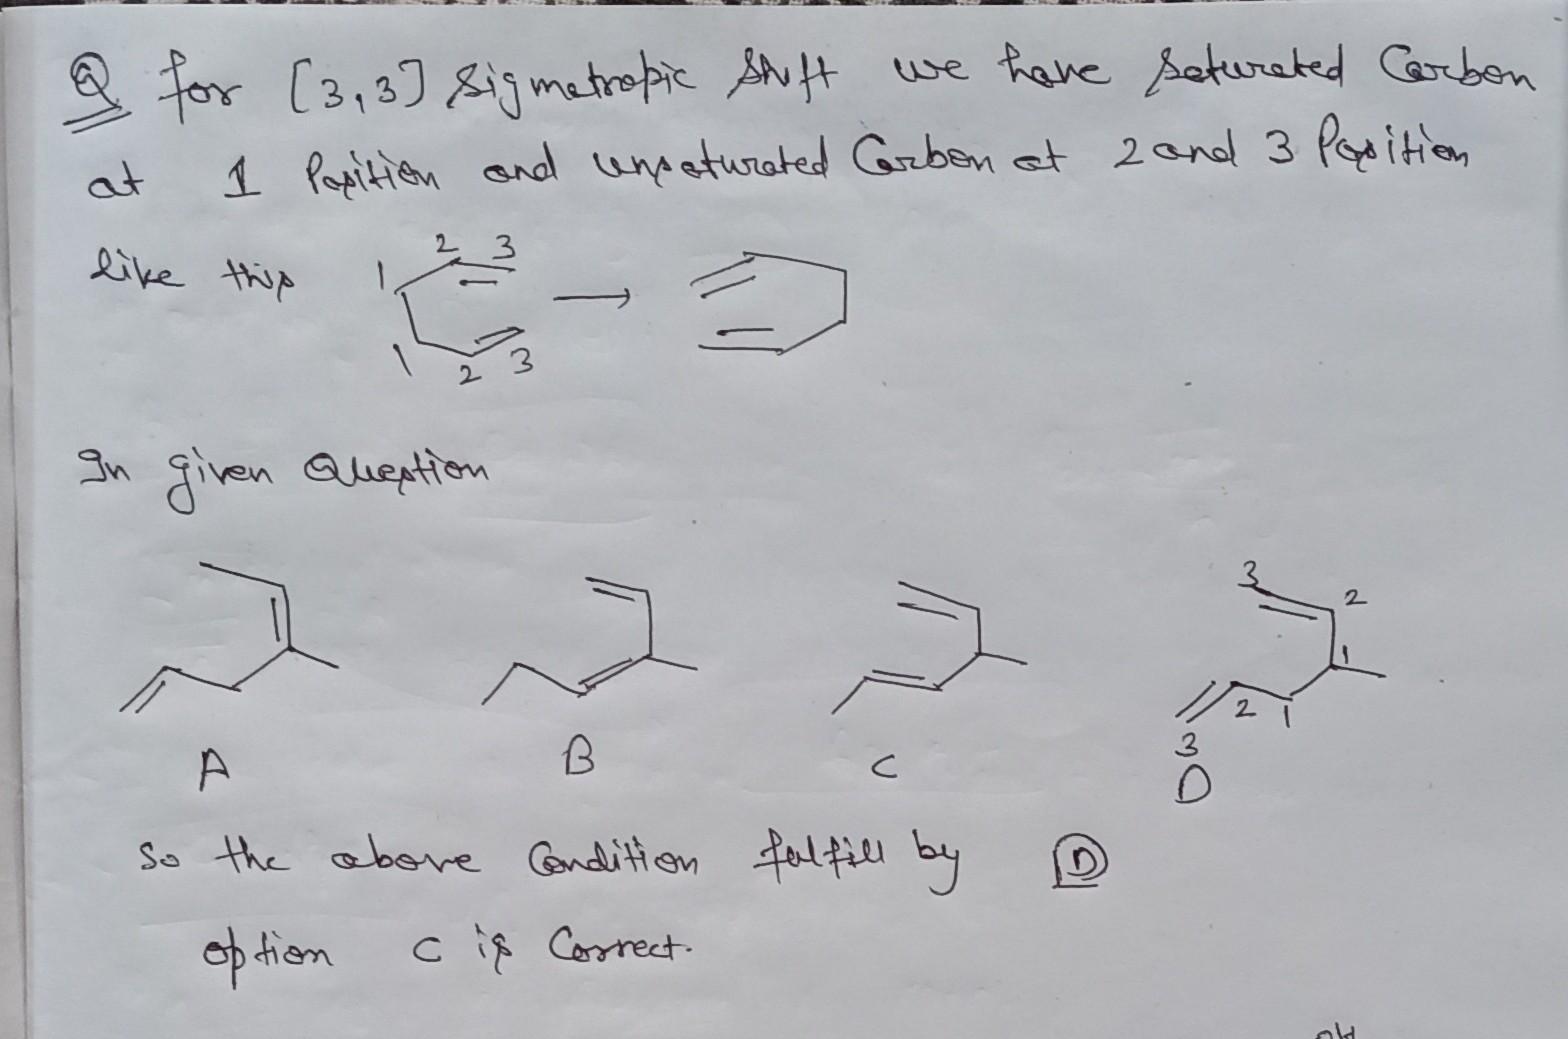 Q for [3,3] Sigmatropic Shift we have saturated Carbon
at 1 Position and unsaturated Carbon at 2 and 3 Position
like this 1 2 3 1 2 3
In given Question
3 2 1 2 1 3
A B C D
So the above Condition fulfill by D
option C is Correct.